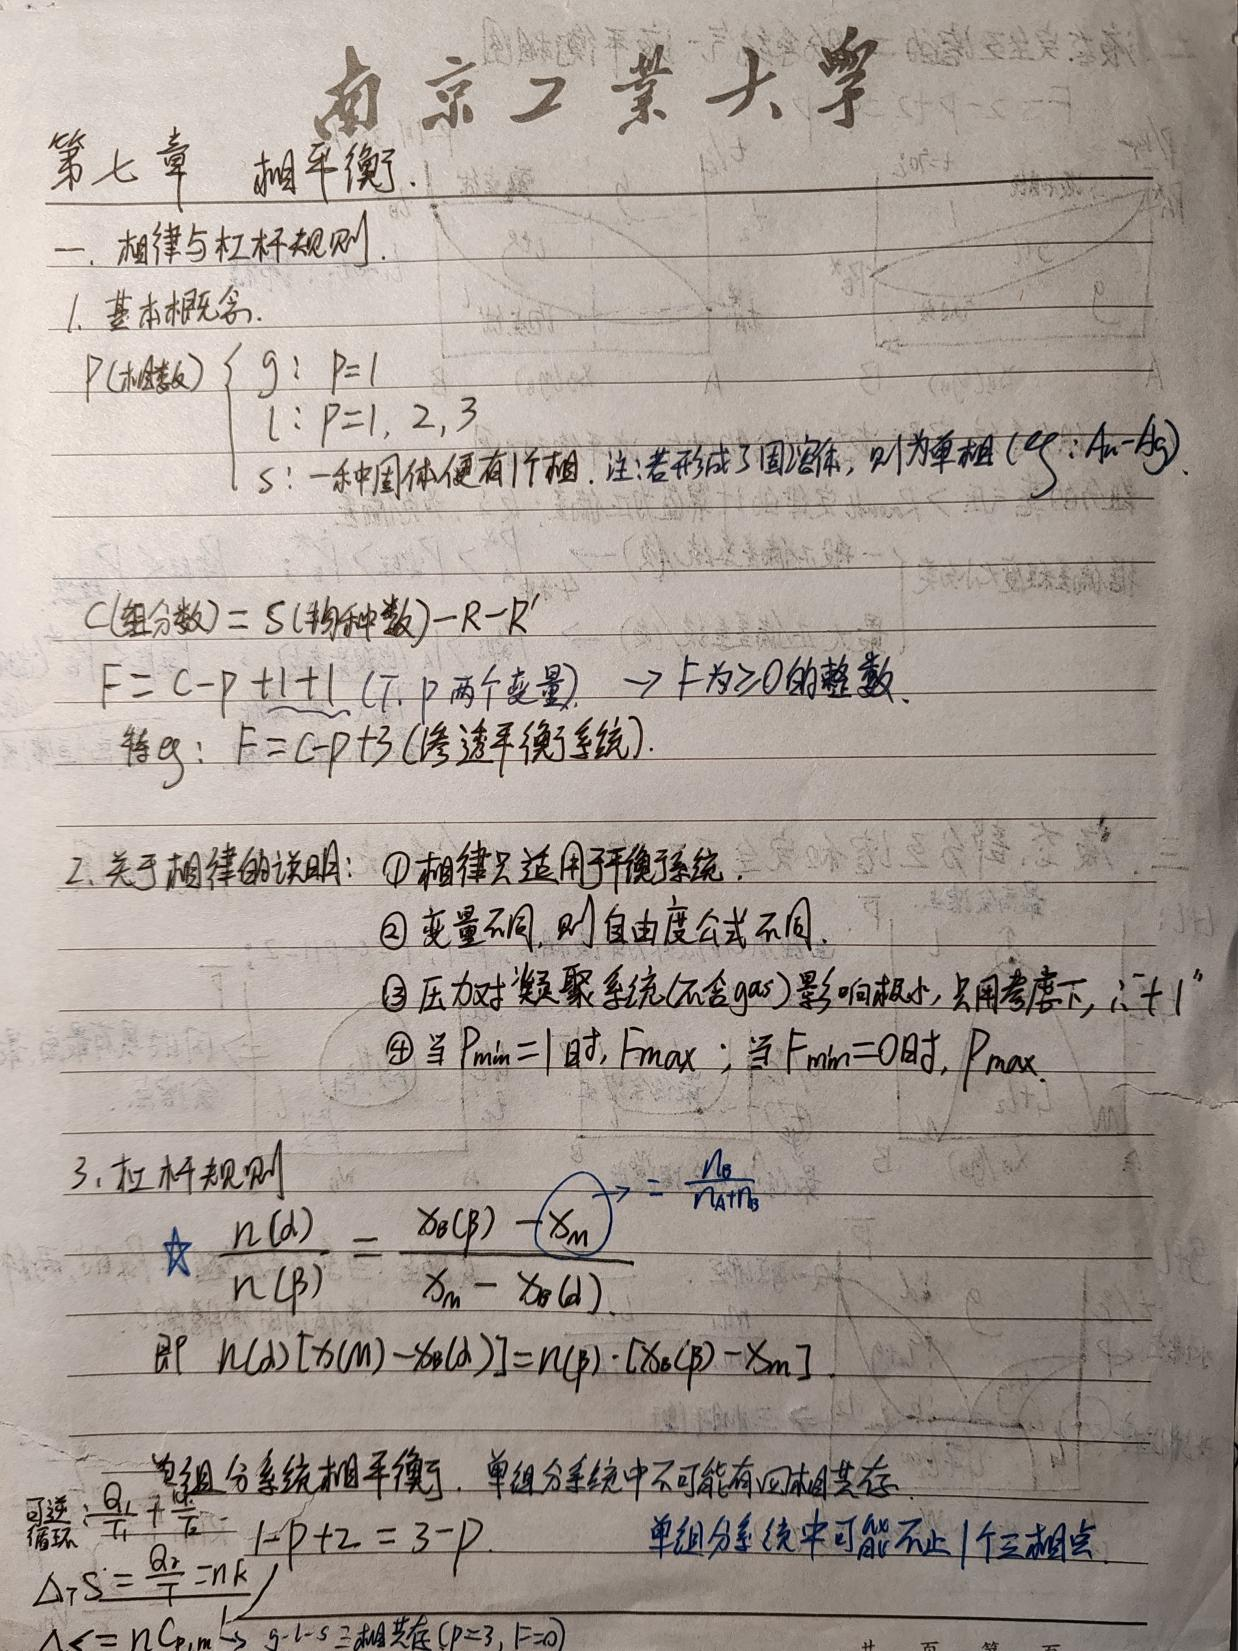 南京工业大学
第七章 相平衡.
一. 相律与杠杆规则.
1. 基本概念.
P(相数) { g: P=1
l: P=1, 2, 3
s: 一种固体便有1个相. 注:若形成了固溶体, 则为单相 (eg: Au-Ag).
C(组分数) = S(物种数)-R-R'
F = C-P+1+1 (T. p 两个变量). → F为≥0的整数.
特eg: F=C-P+3 (渗透平衡系统).
2. 关于相律的说明: ①相律只适用于平衡系统.
② 变量不同, 则自由度公式不同.
③ 压力对凝聚系统(不含gas)影响极小, 只用考虑T, ∴"+1"
④ 当Pmin=1时, Fmax ; 当Fmin=0时, Pmax.
3. 杠杆规则
☆ n(α)/n(β) = (xB(β) - xm)/(xm - xB(α)). → = nB/(nA+nB)
即 n(α)[x(M)-xB(α)]=n(β)·[xB(β)-xm].
单组分系统相平衡. 单组分系统中不可能有四相共存.
可逆循环: Q1/T1 +
1-P+2 = 3-P. 单组分系统中可能不止1个三相点.
ΔTS = =nR
= nCp,m
→ g-l-s 三相共存(P=3, F=0)
共 页 第 页